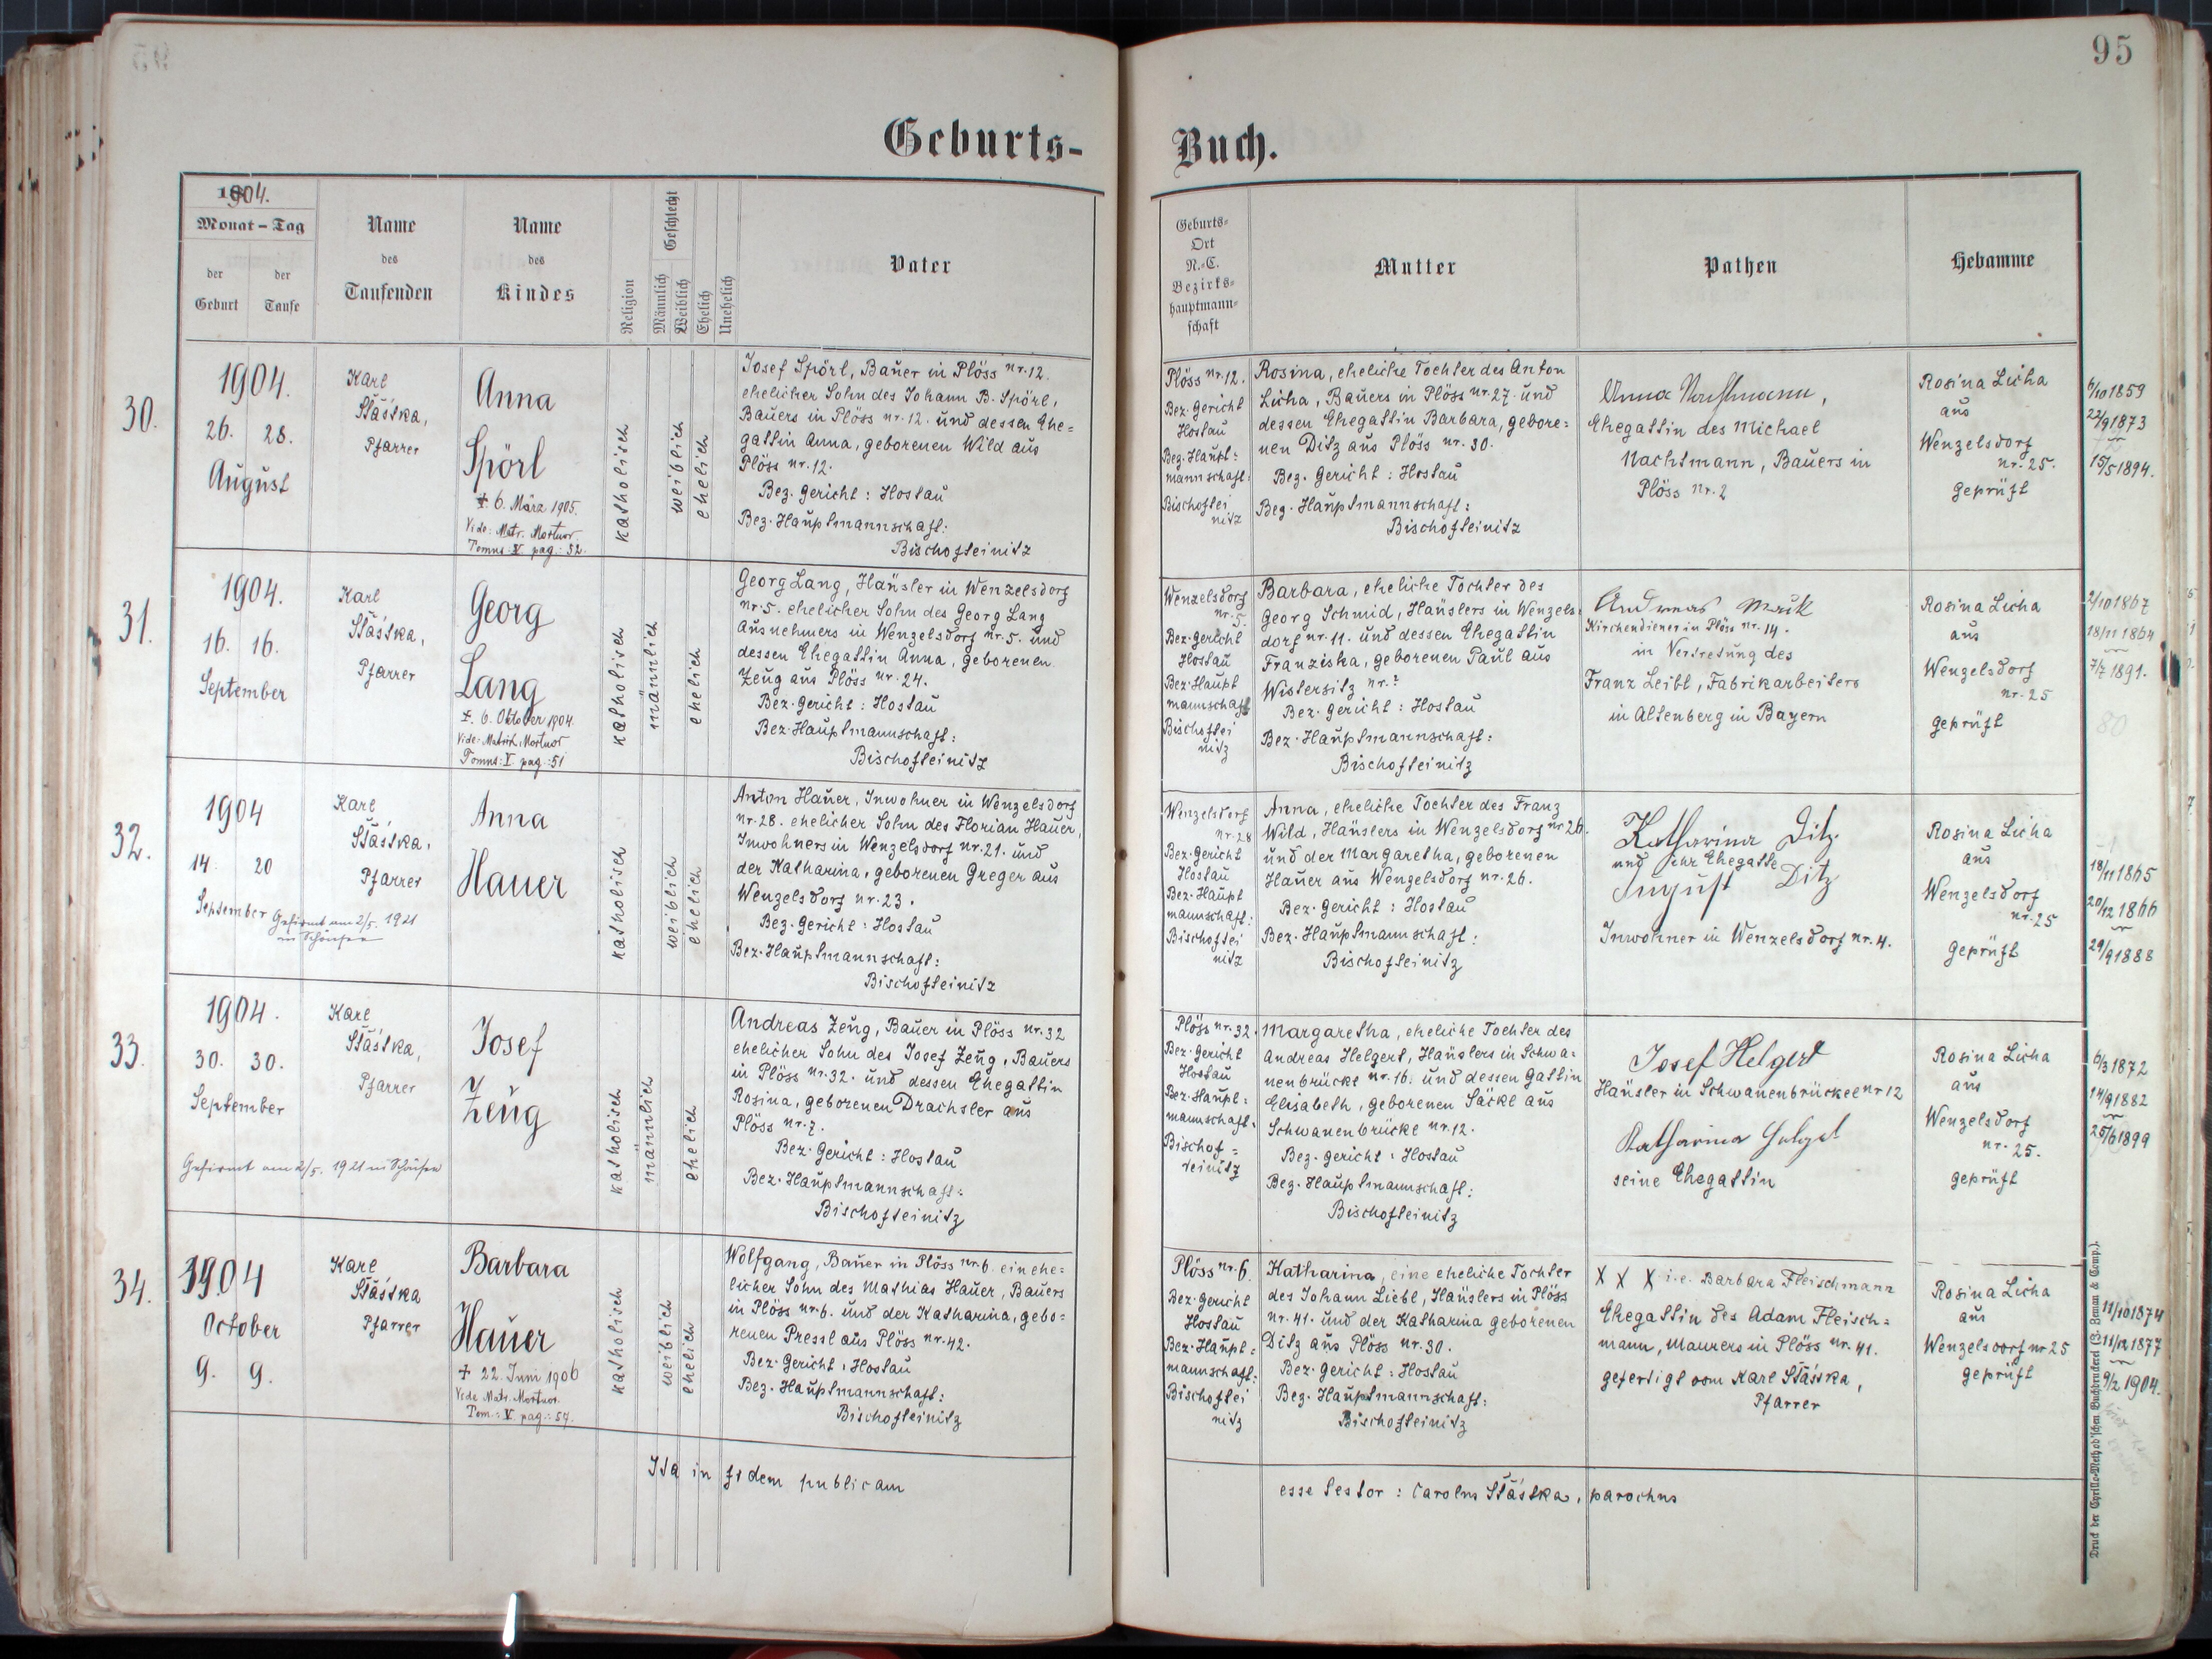 95
Geburts-
Buch.
1904.
Monat – Tag
der Geburt
der Taufe
Name
des
Taufenden
Name
des
Kindes
Religion
Geschlecht
Männlich
Weiblich
Ehelich
Unehelich
Vater
Geburts-
Ort
N.-C.
Bezirks-
hauptmann-
schaft
Mutter
Pathen
Hebamme
30.
1904.
26. 28.
August
Karl
Šťástka,
Pfarrer
Anna
Spörl
† 6. März 1905.
Vide: Matr. Mortuor.
Tomus: V. pag.: 52.
katholisch
weiblich
ehelich
Josef Spörl, Bauer in Plöss nr. 12.
ehelicher Sohn des Johann B. Spörl,
Bauers in Plöss nr. 12. und dessen Ehe=
gattin Anna, geborenen Wild aus
Plöss nr. 12.
Bez. Gericht: Hostau
Bez. Hauptmannschaft:
Bischofteinitz
Plöss nr. 12.
Bez. Gericht
Hostau
Bez. Haupt=
mannschaft:
Bischoftei
nitz
Rosina, eheliche Tochter des Anton
Licha, Bauers in Plöss nr. 27. und
dessen Ehegattin Barbara, gebore=
nen Ditz aus Plöss nr. 30.
Bez. Gericht: Hostau
Bez. Hauptmannschaft:
Bischofteinitz
Anna Nachtmann,
Ehegattin des Michael
Nachtmann, Bauers in
Plöss nr. 2
Rosina Licha
aus
Wenzelsdorf
nr. 25.
geprüft
6/10 1859
22/9 1873
15/5 1894.
31.
1904.
16. 16.
September
Karl
Šťástka,
Pfarrer
Georg
Lang
†. 6. Oktober 1904.
Vide: Matrik. Mortuor
Tomus: V. pag.: 51
katholisch
männlich
ehelich
Georg Lang, Häusler in Wenzelsdorf
nr. 5. ehelicher Sohn des Georg Lang
Ausnehmers in Wenzelsdorf nr. 5. und
dessen Ehegattin Anna, geborenen
Zeug aus Plöss nr. 24.
Bez. Gericht: Hostau
Bez. Hauptmannschaft:
Bischofteinitz
Wenzelsdorf
nr. 5.
Bez. Gericht
Hostau
Bez. Haupt
mannschaft
Bischoftei
nitz
Barbara, eheliche Tochter des
Georg Schmid, Häuslers in Wenzels=
dorf nr. 11. und dessen Ehegattin
Franziska, geborenen Paul aus
Wistersitz nr. ?
Bez. Gericht: Hostau
Bez. Hauptmannschaft:
Bischofteinitz
Andreas Mauk
Kirchendiener in Plöss nr. 14.
in Vertretung des
Franz Leibl, Fabrikarbeiters
in Altenberg in Bayern
Rosina Licha
aus
Wenzelsdorf
nr. 25
geprüft
2/10 1867
18/11 1864
7/7 1891.
80
32.
1904
14. 20
September
Gefirmt am 2/5. 1921
Karl
Šťástka,
Pfarrer
Anna
Hauer
katholisch
weiblich
ehelich
Anton Hauer, Inwohner in Wenzelsdorf
nr. 28. ehelicher Sohn des Florian Hauer,
Inwohners in Wenzelsdorf nr. 21. und
der Katharina, geborenen Greger aus
Wenzelsdorf nr. 23.
Bez. Gericht: Hostau
Bez. Hauptmannschaft:
Bischofteinitz
Wenzelsdorf
nr. 28
Bez. Gericht
Hostau
Bez. Haupt
mannschaft:
Bischoftei
nitz
Anna, eheliche Tochter des Franz
Wild, Häuslers in Wenzelsdorf nr 26.
und der Margaretha, geborenen
Hauer aus Wenzelsdorf nr. 26.
Bez. Gericht: Hostau
Bez. Hauptmannschaft:
Bischofteinitz
Katharina Ditz
und ihr Ehegatte
August Ditz
Inwohner in Wenzelsdorf nr. 4.
Rosina Licha
aus
Wenzelsdorf
nr. 25
geprüft
18/11 1865
20/12 1866
29/9 1888
33.
1904.
30. 30.
September
Gefirmt am 2/5. 1921 in
Karl
Šťástka,
Pfarrer
Josef
Zeug
katholisch
männlich
ehelich
Andreas Zeug, Bauer in Plöss nr. 32
ehelicher Sohn des Josef Zeug, Bauers
in Plöss nr. 32. und dessen Ehegattin
Rosina, geborenen Drachsler aus
Plöss nr. 7.
Bez. Gericht: Hostau
Bez. Hauptmannschaft:
Bischofteinitz
Plöss nr. 32.
Bez. Gericht
Hostau
Bez. Haupt=
mannschaft.
Bischof=
teinitz
Margaretha, eheliche Tochter des
Andreas Helgert, Häuslers in Schwa=
nenbrückl nr. 16. und dessen Gattin
Elisabeth, geborenen Säckl aus
Schwanenbrückl nr. 12.
Bez. Gericht: Hostau
Bez. Hauptmannschaft:
Bischofteinitz
Josef Helgert
Häusler in Schwanenbrückel nr 12
Katharina Helgert
seine Ehegattin
Rosina Licha
aus
Wenzelsdorf
nr. 25.
geprüft
6/3 1872
14/9 1882
25/6 1899
34.
1904
October
9. 9.
Karl
Šťástka
Pfarrer
Barbara
Hauer
† 22. Juni 1906
Vide Matr. Mortuor.
Tom.: V. pag.: 54.
katholisch
weiblich
ehelich
Wolfgang, Bauer in Plöss nr. 6. ein ehe=
licher Sohn des Mathias Hauer, Bauers
in Plöss nr. 6. und der Katharina, gebo=
renen Pressl aus Plöss nr. 42.
Bez. Gericht: Hostau
Bez. Hauptmannschaft:
Bischofteinitz
Plöss nr. 6.
Bez. Gericht
Hostau
Bez. Haupt=
mannschaft:
Bischoftei
nitz
Katharina, eine eheliche Tochter
des Johann Liebl, Häuslers in Plöss
nr. 41. und der Katharina geborenen
Ditz aus Plöss nr. 30.
Bez. Gericht: Hostau
Bez. Hauptmannschaft:
Bischofteinitz
X X X i.e. Barbara Fleischmann
Ehegattin des Adam Fleisch=
mann, Maurers in Plöss nr. 41.
gefertigt vom Karl Šťástka,
Pfarrer
Rosina Licha
aus
Wenzelsdorf nr 25
geprüft
11/10 1874
11/12 1877
9/2 1904.
Ita in fidem publicam
esse testor: Carolus Šťástka, parochus
Druck der Cyrillo-Method'schen Buchdruckerei (J. Zeman & Comp.).